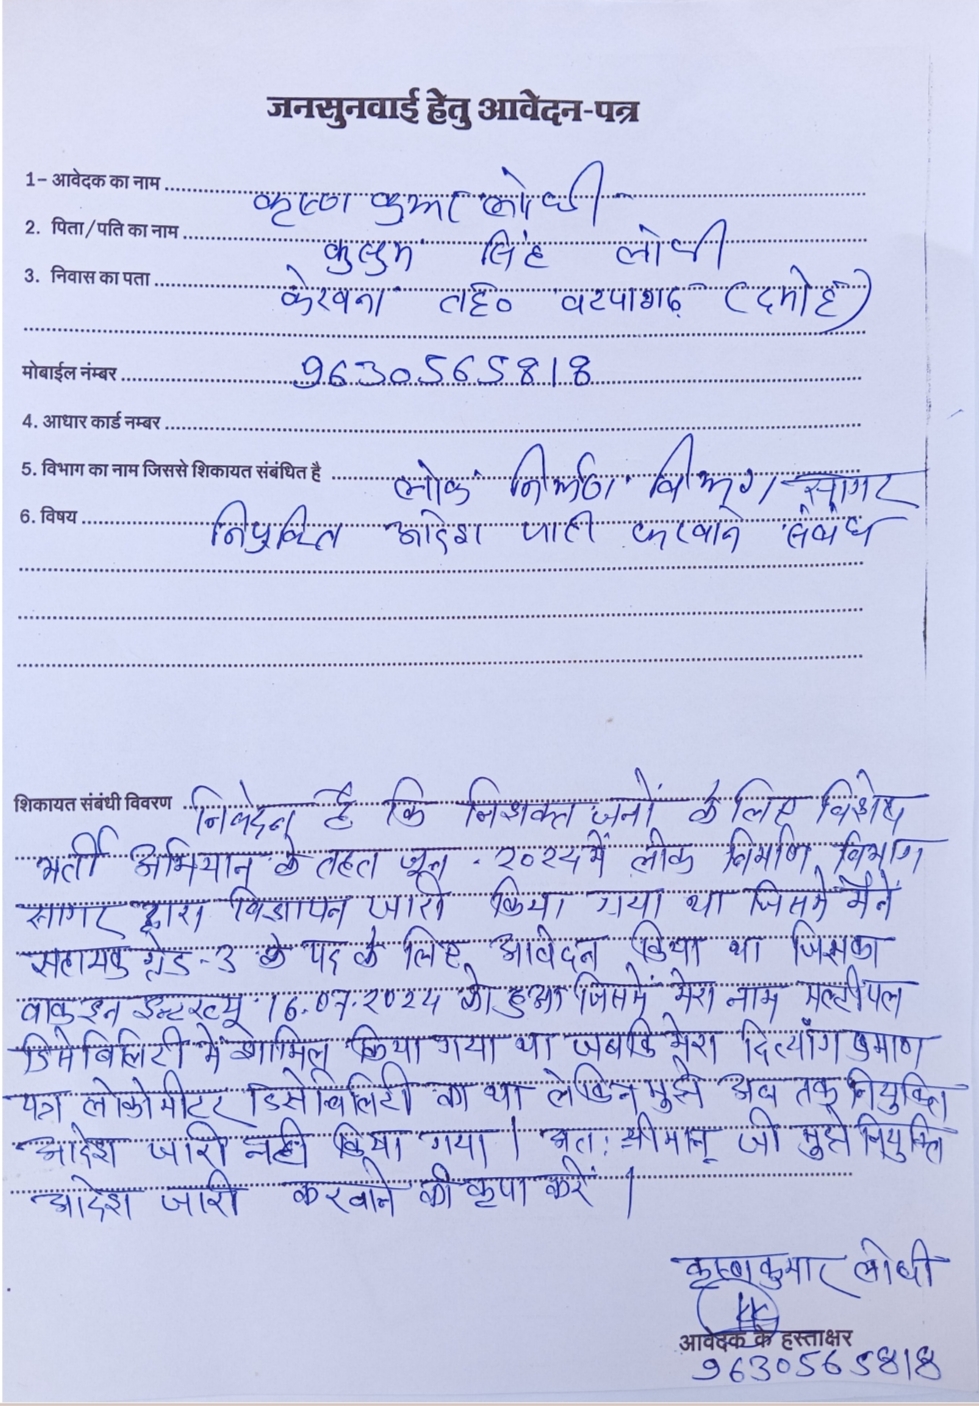 जनसुनवाई हेतु आवेदन-पत्र
1- आवेदक का नाम कृष्ण कुमार लोधी
2. पिता/पति का नाम कुसुम सिंह लोधी
3. निवास का पता केरबना तह० बटियागढ़ (दमोह)
मोबाईल नंम्बर 9630565818
4. आधार कार्ड नम्बर
5. विभाग का नाम जिससे शिकायत संबंधित है लोक निर्माण विभाग सागर
6. विषय नियुक्ति आदेश जारी करवाने संबंध
शिकायत संबंधी विवरण निवेदन है कि निशक्त जनों के लिए विशेष
भर्ती अभियान के तहत जून - २०२४ में लोक निर्माण विभाग
सागर द्वारा विज्ञापन जारी किया गया था जिसमें मैंने
सहायक ग्रेड-3 के पद के लिए आवेदन किया था जिसका
वाक इन इन्टरव्यू 16.07.२०२४ को हुआ जिसमें मेरा नाम मल्टीपल
डिसेबिलिटी में शामिल किया गया था जबकि मेरा दिव्यांग प्रमाण
पत्र लोकोमीटर डिसेबिलिटी का था लेकिन मुझे अब तक नियुक्ति
आदेश जारी नही किया गया | अत: श्रीमान् जी मुझे नियुक्ति
आदेश जारी करवाने की कृपा करें |
कृष्ण कुमार लोधी
KK
आवेदक के हस्ताक्षर
9630565818